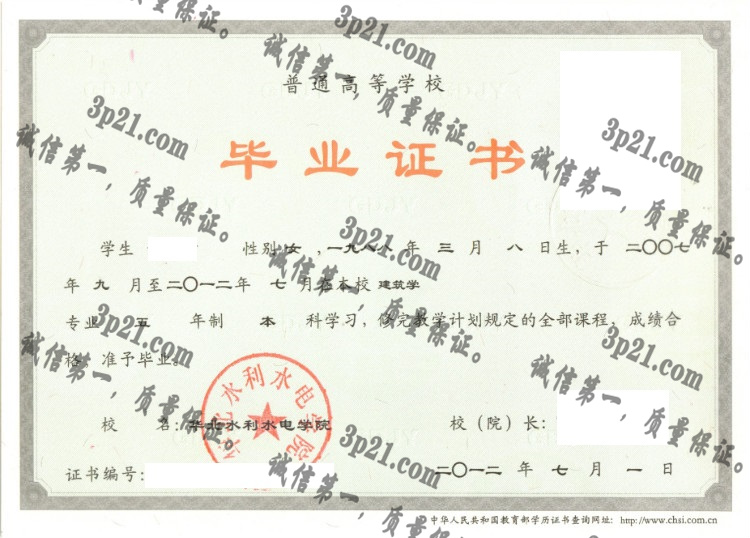 普通高等学校
毕业证书
学生 性别 女 ,一九八八 年 三 月 八 日生, 于 二〇〇七
年 九 月至二〇一二年 七 月在本校 建筑学
专业 五 年制 本 科学习, 修完教学计划规定的全部课程, 成绩合
格, 准予毕业。
校 名: 华北水利水电学院
校（院）长:
华北水利水电学院
证书编号:
二〇一二 年 七 月 一 日
中华人民共和国教育部学历证书查询网址: http://www.chsi.com.cn
3p21.com
诚信第一，质量保证。
3p21.com
诚信第一，质量保证。
3p21.com
诚信第一，质量保证。
3p21.com
诚信第一，质量保证。
3p21.com
诚信第一，质量保证。
3p21.com
诚信第一，质量保证。
3p21.com
诚信第一，质量保证。